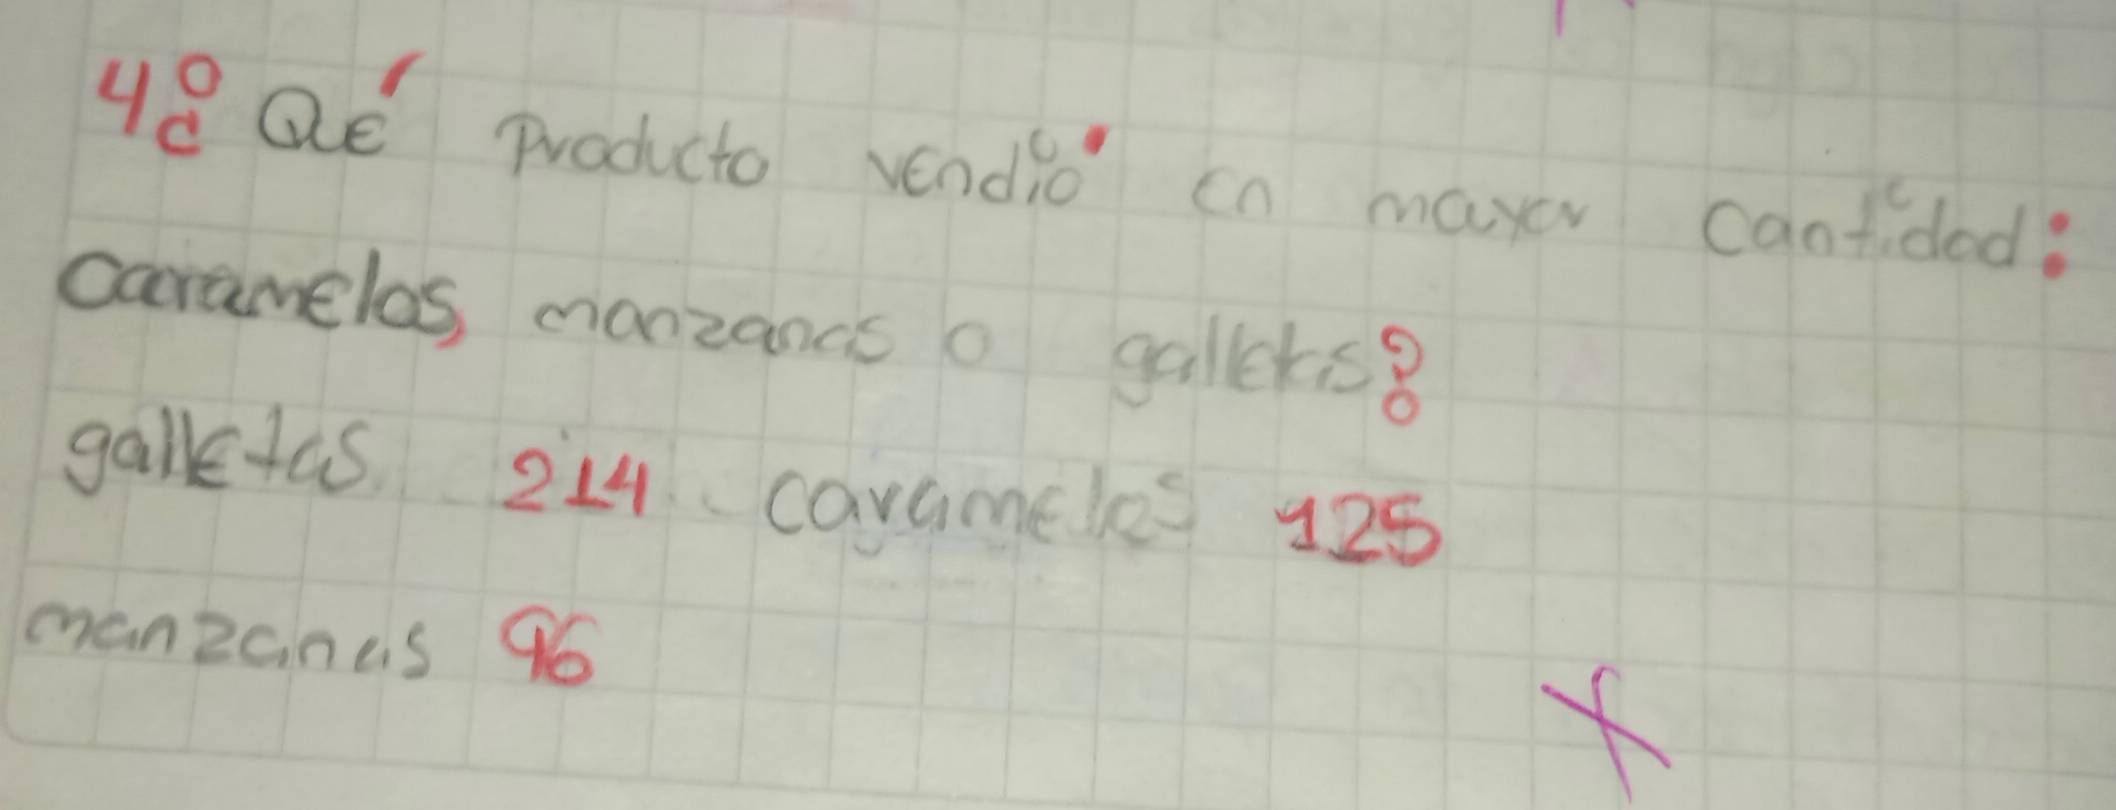 4 ¿Qé Producto vendió en mayor cantidad:
Caramelos, manzanas o galletas?
galletas 214 caramelos 125
manzanas 96